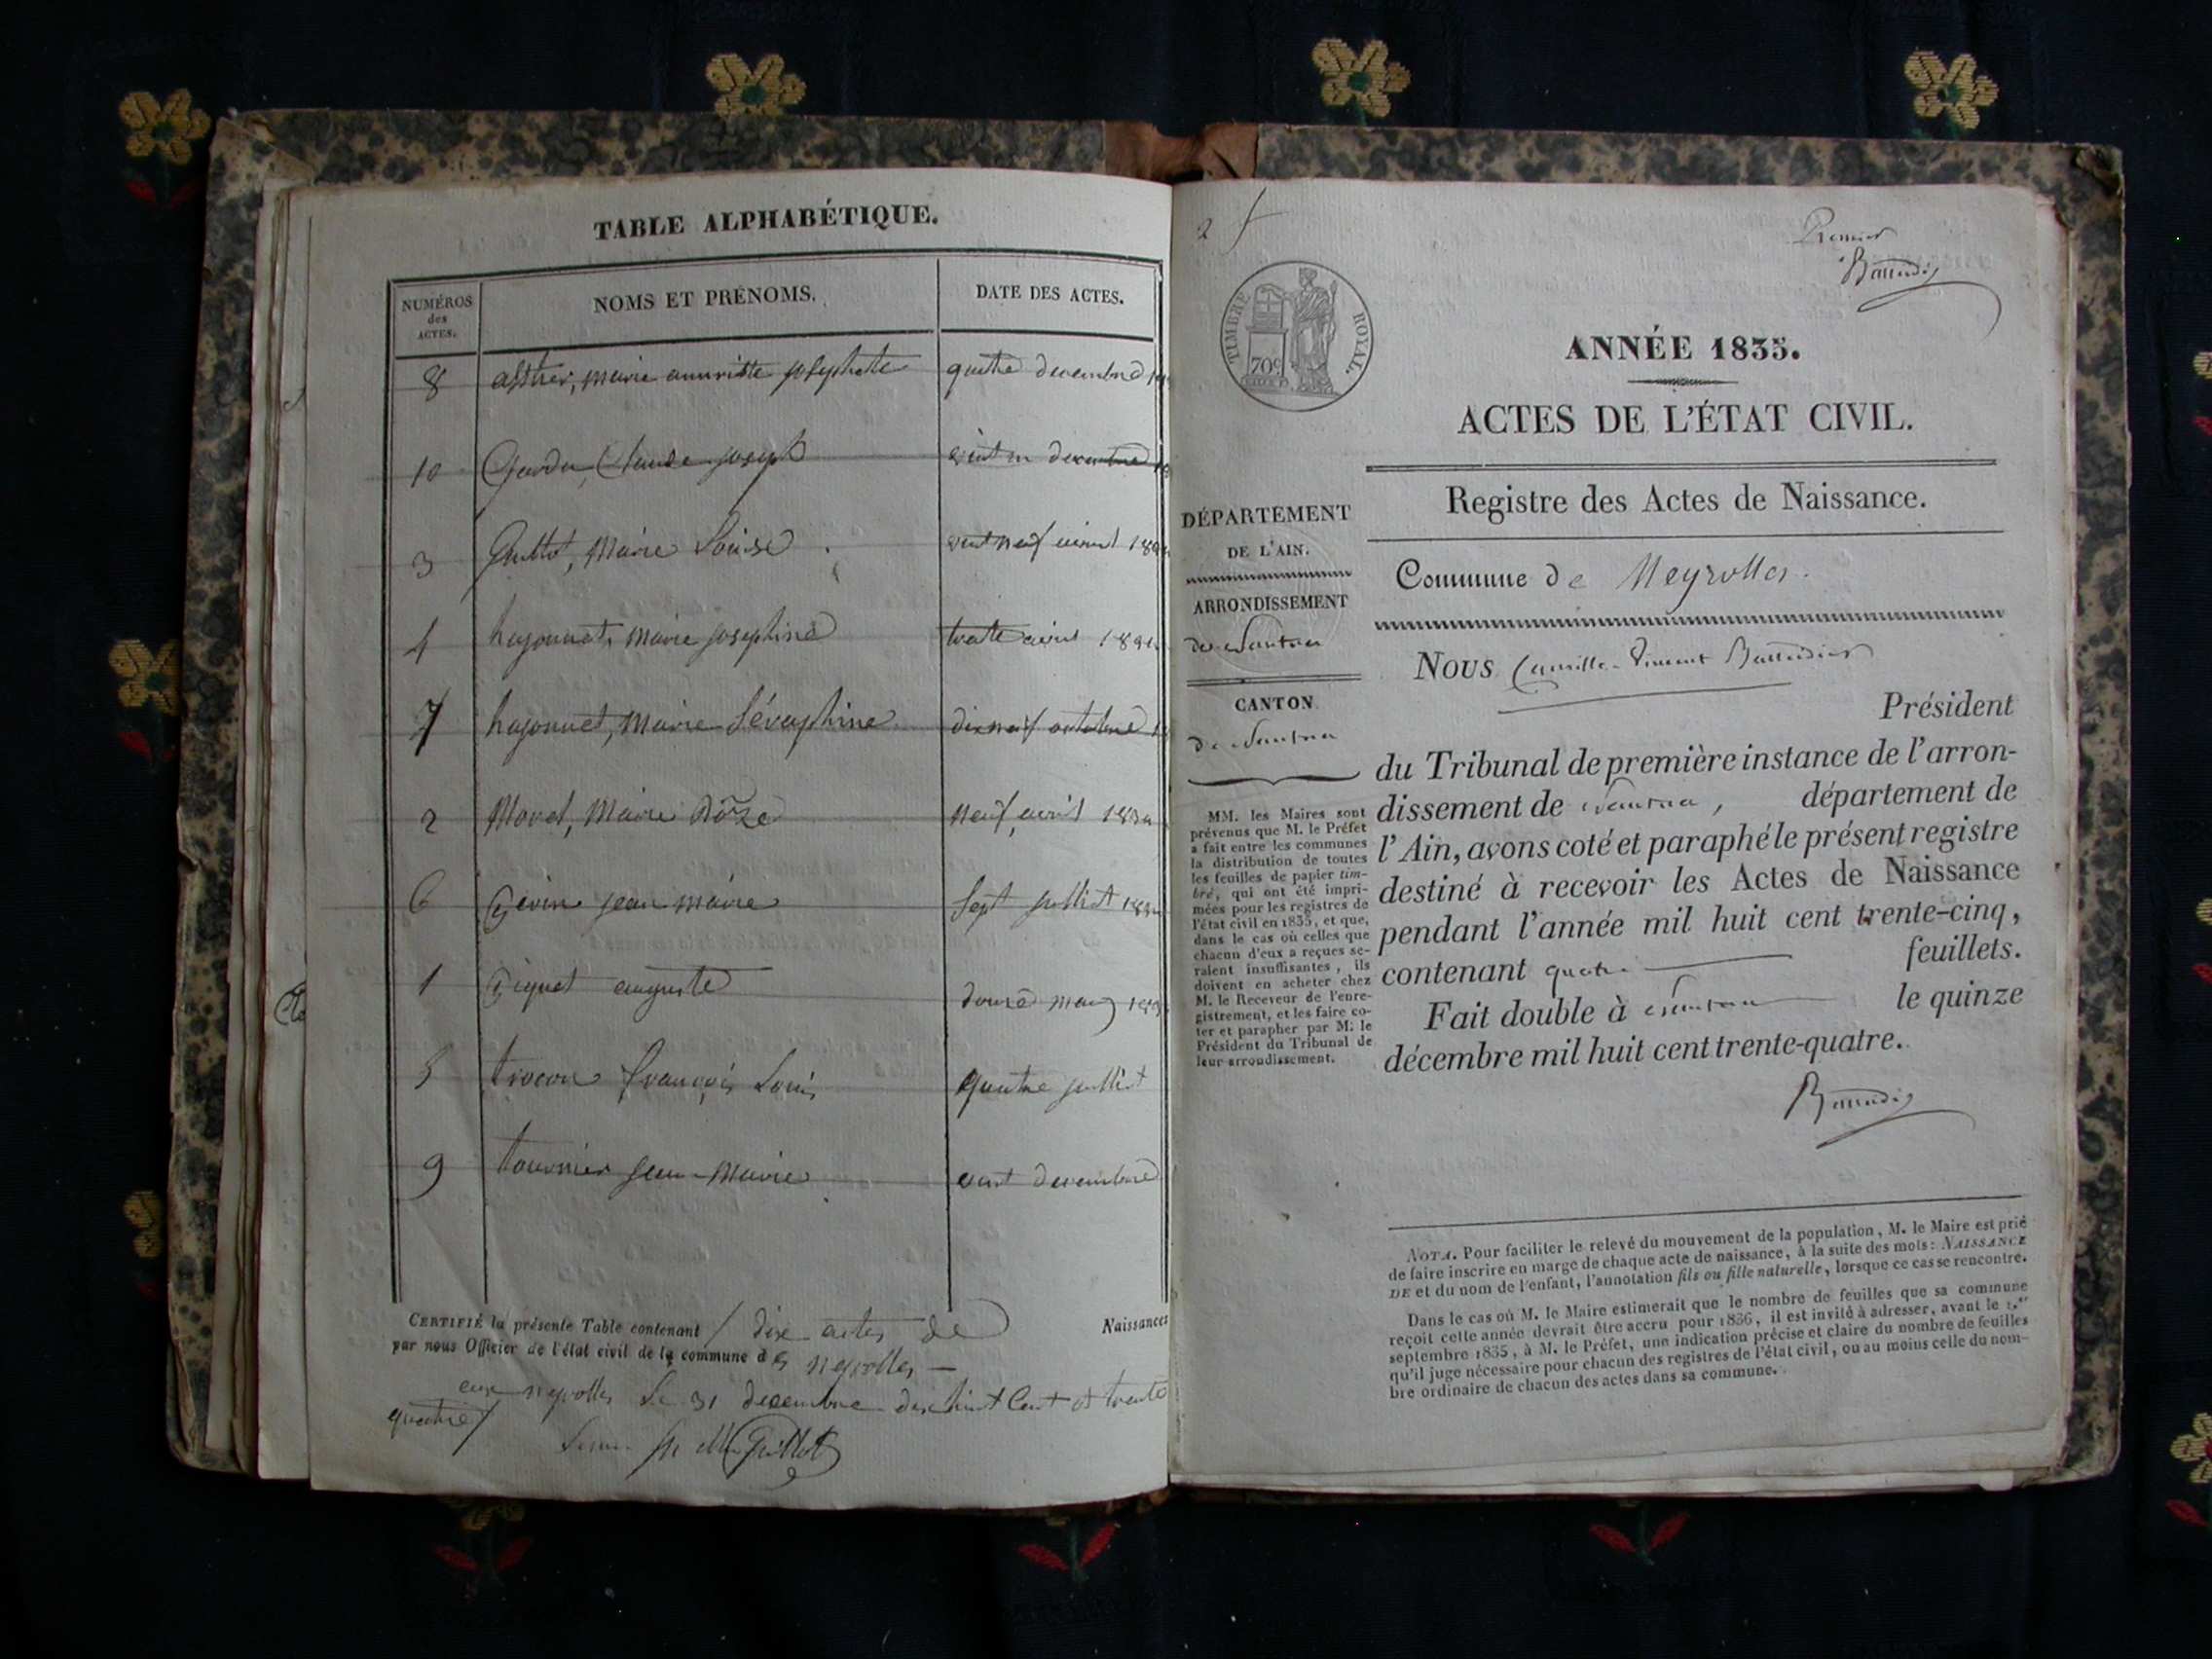 TABLE ALPHABÉTIQUE.
NUMÉROS des ACTES.
NOMS ET PRÉNOMS.
DATE DES ACTES.
8 marie josephete quatre decembre
10 Claude joseph vint un decembre
3 Guillot, Marie Louise vent neuf avril 183
4 hugonnet, Marie josephine trente avril 183
7 hugonnet, Marie Séraphine dix neuf octobre 1
2 Morel, Marie Roze neuf avril 183
6 jean marie Sept juilliet 183
1 auguste douze mars 183
5 françois Louis quatre juilliet
9 tournier jean-Marie vint decembre
CERTIFIÉ la présente Table contenant / dix actes de Naissances
par nous Officier de l'état civil de la commune des neyrolles —
aux neyrolles le 31 decembre dix huit Cent et trente
quatre /
Guillot
2
Premier
TIMBRE ROYAL.
70c
ANNÉE 1835.
ACTES DE L'ÉTAT CIVIL.
Registre des Actes de Naissance.
DÉPARTEMENT
DE L'AIN.
ARRONDISSEMENT
de Nantua
CANTON
de Nantua
MM. les Maires sont
prévenus que M. le Préfet
a fait entre les communes
la distribution de toutes
les feuilles de papier tim-
bré, qui ont été impri-
mées pour les registres de
l'état civil en 1835, et que,
dans le cas où celles que
chacun d'eux a reçues se-
raient insuffisantes, ils
doivent en acheter chez
M. le Receveur de l'enre-
gistrement, et les faire co-
ter et parapher par M. le
Président du Tribunal de
leur arrondissement.
Commune de Neyrolles.
Nous Camille-Vincent
Président
du Tribunal de première instance de l'arron-
dissement de Nantua, département de
l'Ain, avons coté et paraphé le présent registre
destiné à recevoir les Actes de Naissance
pendant l'année mil huit cent trente-cinq,
contenant quatre feuillets.
Fait double à Nantua le quinze
décembre mil huit cent trente-quatre.
NOTA. Pour faciliter le relevé du mouvement de la population, M. le Maire est prié
de faire inscrire en marge de chaque acte de naissance, à la suite des mots: NAISSANCE
DE et du nom de l'enfant, l'annotation fils ou fille naturelle, lorsque ce cas se rencontre.
Dans le cas où M. le Maire estimerait que le nombre de feuilles que sa commune
reçoit cette année devrait être accru pour 1836, il est invité à adresser, avant le 1.er
septembre 1835, à M. le Préfet, une indication précise et claire du nombre de feuilles
qu'il juge nécessaire pour chacun des registres de l'état civil, ou au moins celle du nom-
bre ordinaire de chacun des actes dans sa commune.